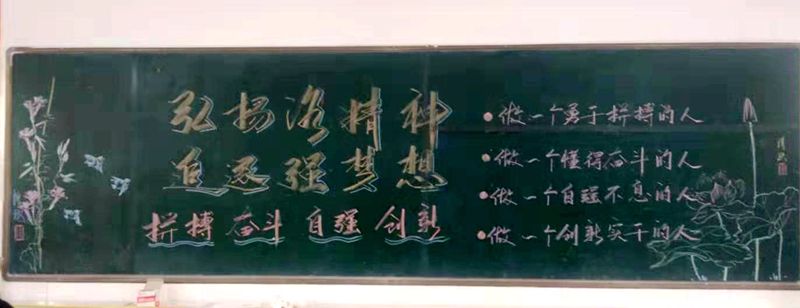 弘扬洛精神
追逐强梦想
拼搏 奋斗 自强 创新
做一个勇于拼搏的人
做一个懂得奋斗的人
做一个自强不息的人
做一个创新实干的人